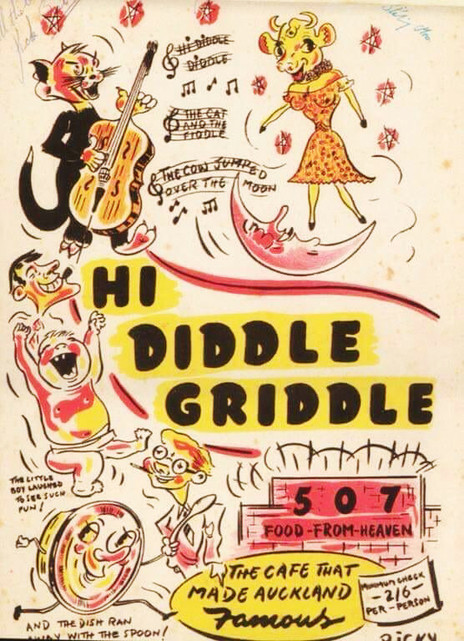 HI DIDDLE
DIDDLE
THE CAT
AND THE
FIDDLE
THE COW JUMPED
OVER THE MOON
HI
DIDDLE
GRIDDLE
THE LITTLE
BOY LAUGHED
TO SEE SUCH
FUN!
507
FOOD-FROM-HEAVEN
THE CAFE THAT
MADE AUCKLAND
Famous
MINIMUM CHECK
-2/6-
PER-PERSON
AND THE DISH RAN
AWAY WITH THE SPOON!